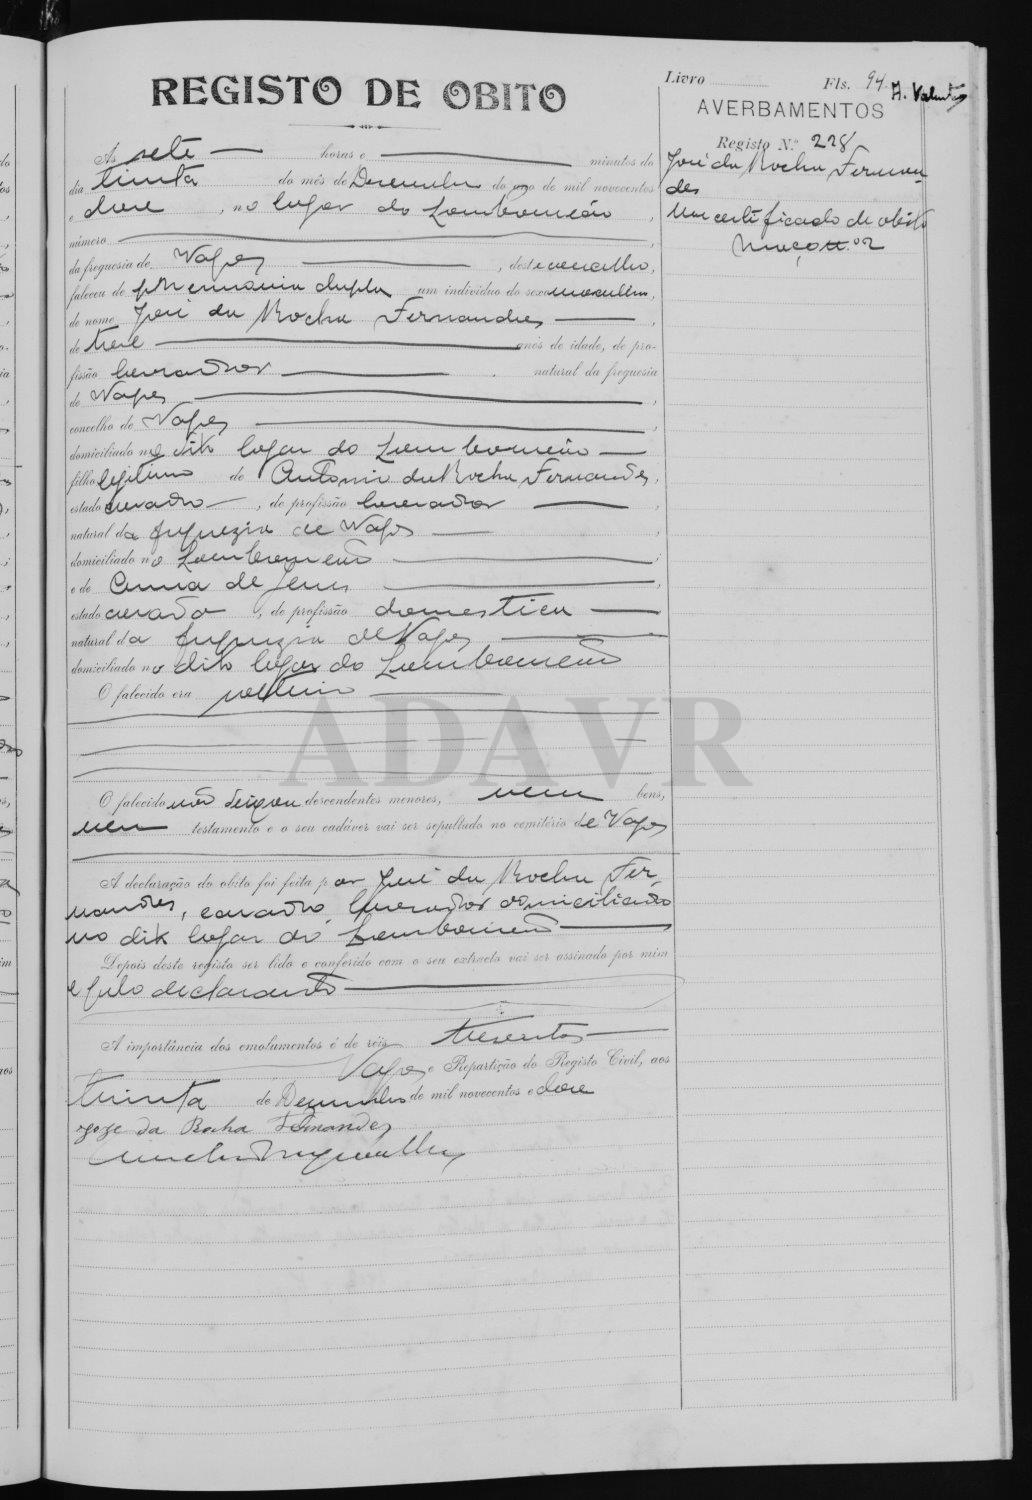 REGISTO DE OBITO
Livro Fls. 94 A. Valente
AVERBAMENTOS
Registo N.º 228
José da Rocha Fernan-
des
Um certificado de obito
Maço n.º 2
As sete horas e minutos do
dia trinta do mês de Dezembro do ano de mil novecentos
e doze, no logar do Lombomeão,
número,
da freguesia de Vagos, deste concelho,
faleceu de pneumonia dupla um indivíduo do sexo masculino,
de nome José da Rocha Fernandes,
de treze anos de idade, de pro-
fissão lavrador, natural da freguesia
de Vagos,
concelho de Vagos,
domiciliado no dito logar do Lombomeão
filho legitimo de Antonio da Rocha Fernandes,
estado casado, de profissão lavrador,
natural da freguezia de Vagos,
domiciliado no Lombomeão;
e de Anna de Jesus,
estado casada, de profissão domestica
natural da freguezia de Vagos,
domiciliado no dito logar do Lombomeão
O falecido era solteiro
ADAVR
O falecido não deixou descendentes menores, nem bens,
nem testamento e o seu cadáver vai ser sepultado no cemitério de Vagos
A declaração do obito foi feita por José da Rocha Fer-
nandes, casado, lavrador domiciliado
no dito logar do Lombomeão
Depois deste registo ser lido e conferido com o seu extracto vai ser assinado por mim
e pelo declarante
A importância dos emolumentos é de reis tresentos
Vagos e Repartição do Registo Civil, aos
trinta de Dezembro de mil novecentos e doze
Joze da Rocha Fernandes